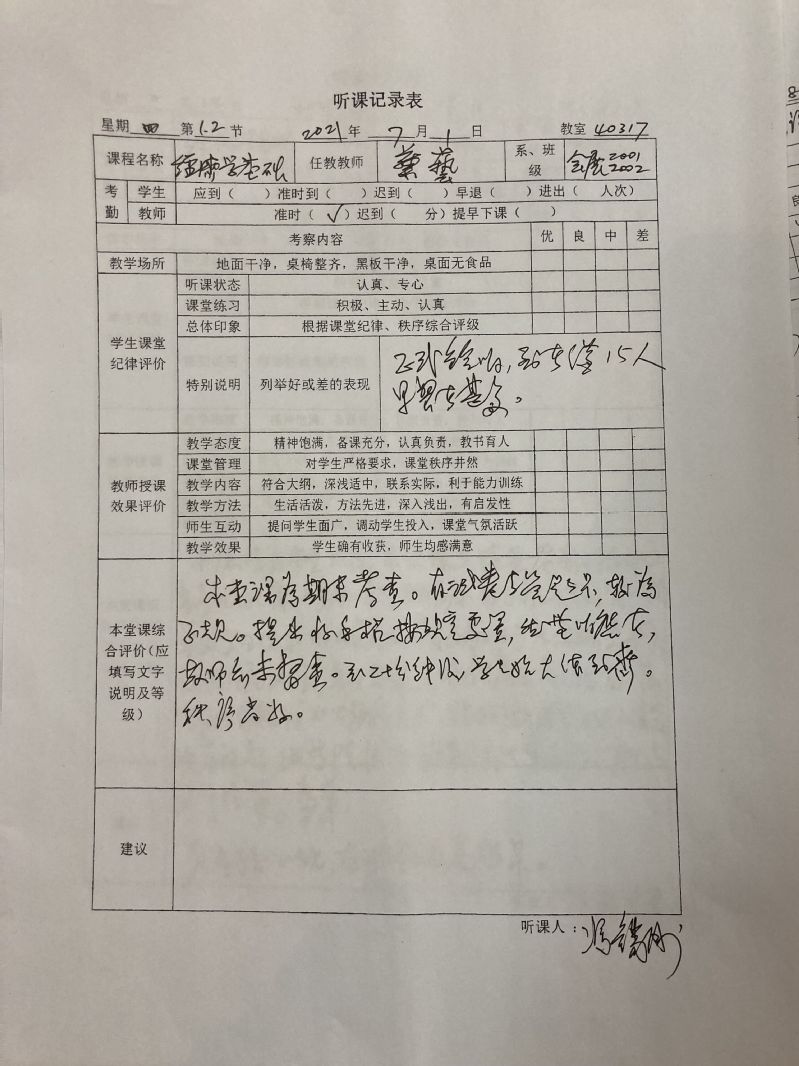 听课记录表
星期 四 第 1.2 节 2021 年 7 月 1 日 教室 40317
课程名称 经济学基础 任教教师 蔡艺 系、班级 会展2001 2002
考勤 学生 应到( )准时到( )迟到( )早退( )进出( 人次)
教师 准时(√)迟到( 分)提早下课( )
考察内容 优 良 中 差
教学场所 地面干净，桌椅整齐，黑板干净，桌面无食品
学生课堂纪律评价
听课状态 认真、专心
课堂练习 积极、主动、认真
总体印象 根据课堂纪律、秩序综合评级
特别说明 列举好或差的表现
正式铃响，到 15人
教师授课效果评价
教学态度 精神饱满，备课充分，认真负责，教书育人
课堂管理 对学生严格要求，课堂秩序井然
教学内容 符合大纲，深浅适中，联系实际，利于能力训练
教学方法 生活活泼，方法先进，深入浅出，有启发性
师生互动 提问学生面广，调动学生投入，课堂气氛活跃
教学效果 学生确有收获，师生均感满意
本堂课综合评价(应填写文字说明及等级)
本堂课为期末考查。在 较为
不大
教师 未 查。 二十分钟后 学生 大体到齐。
秩序尚好。
建议
听课人：冯